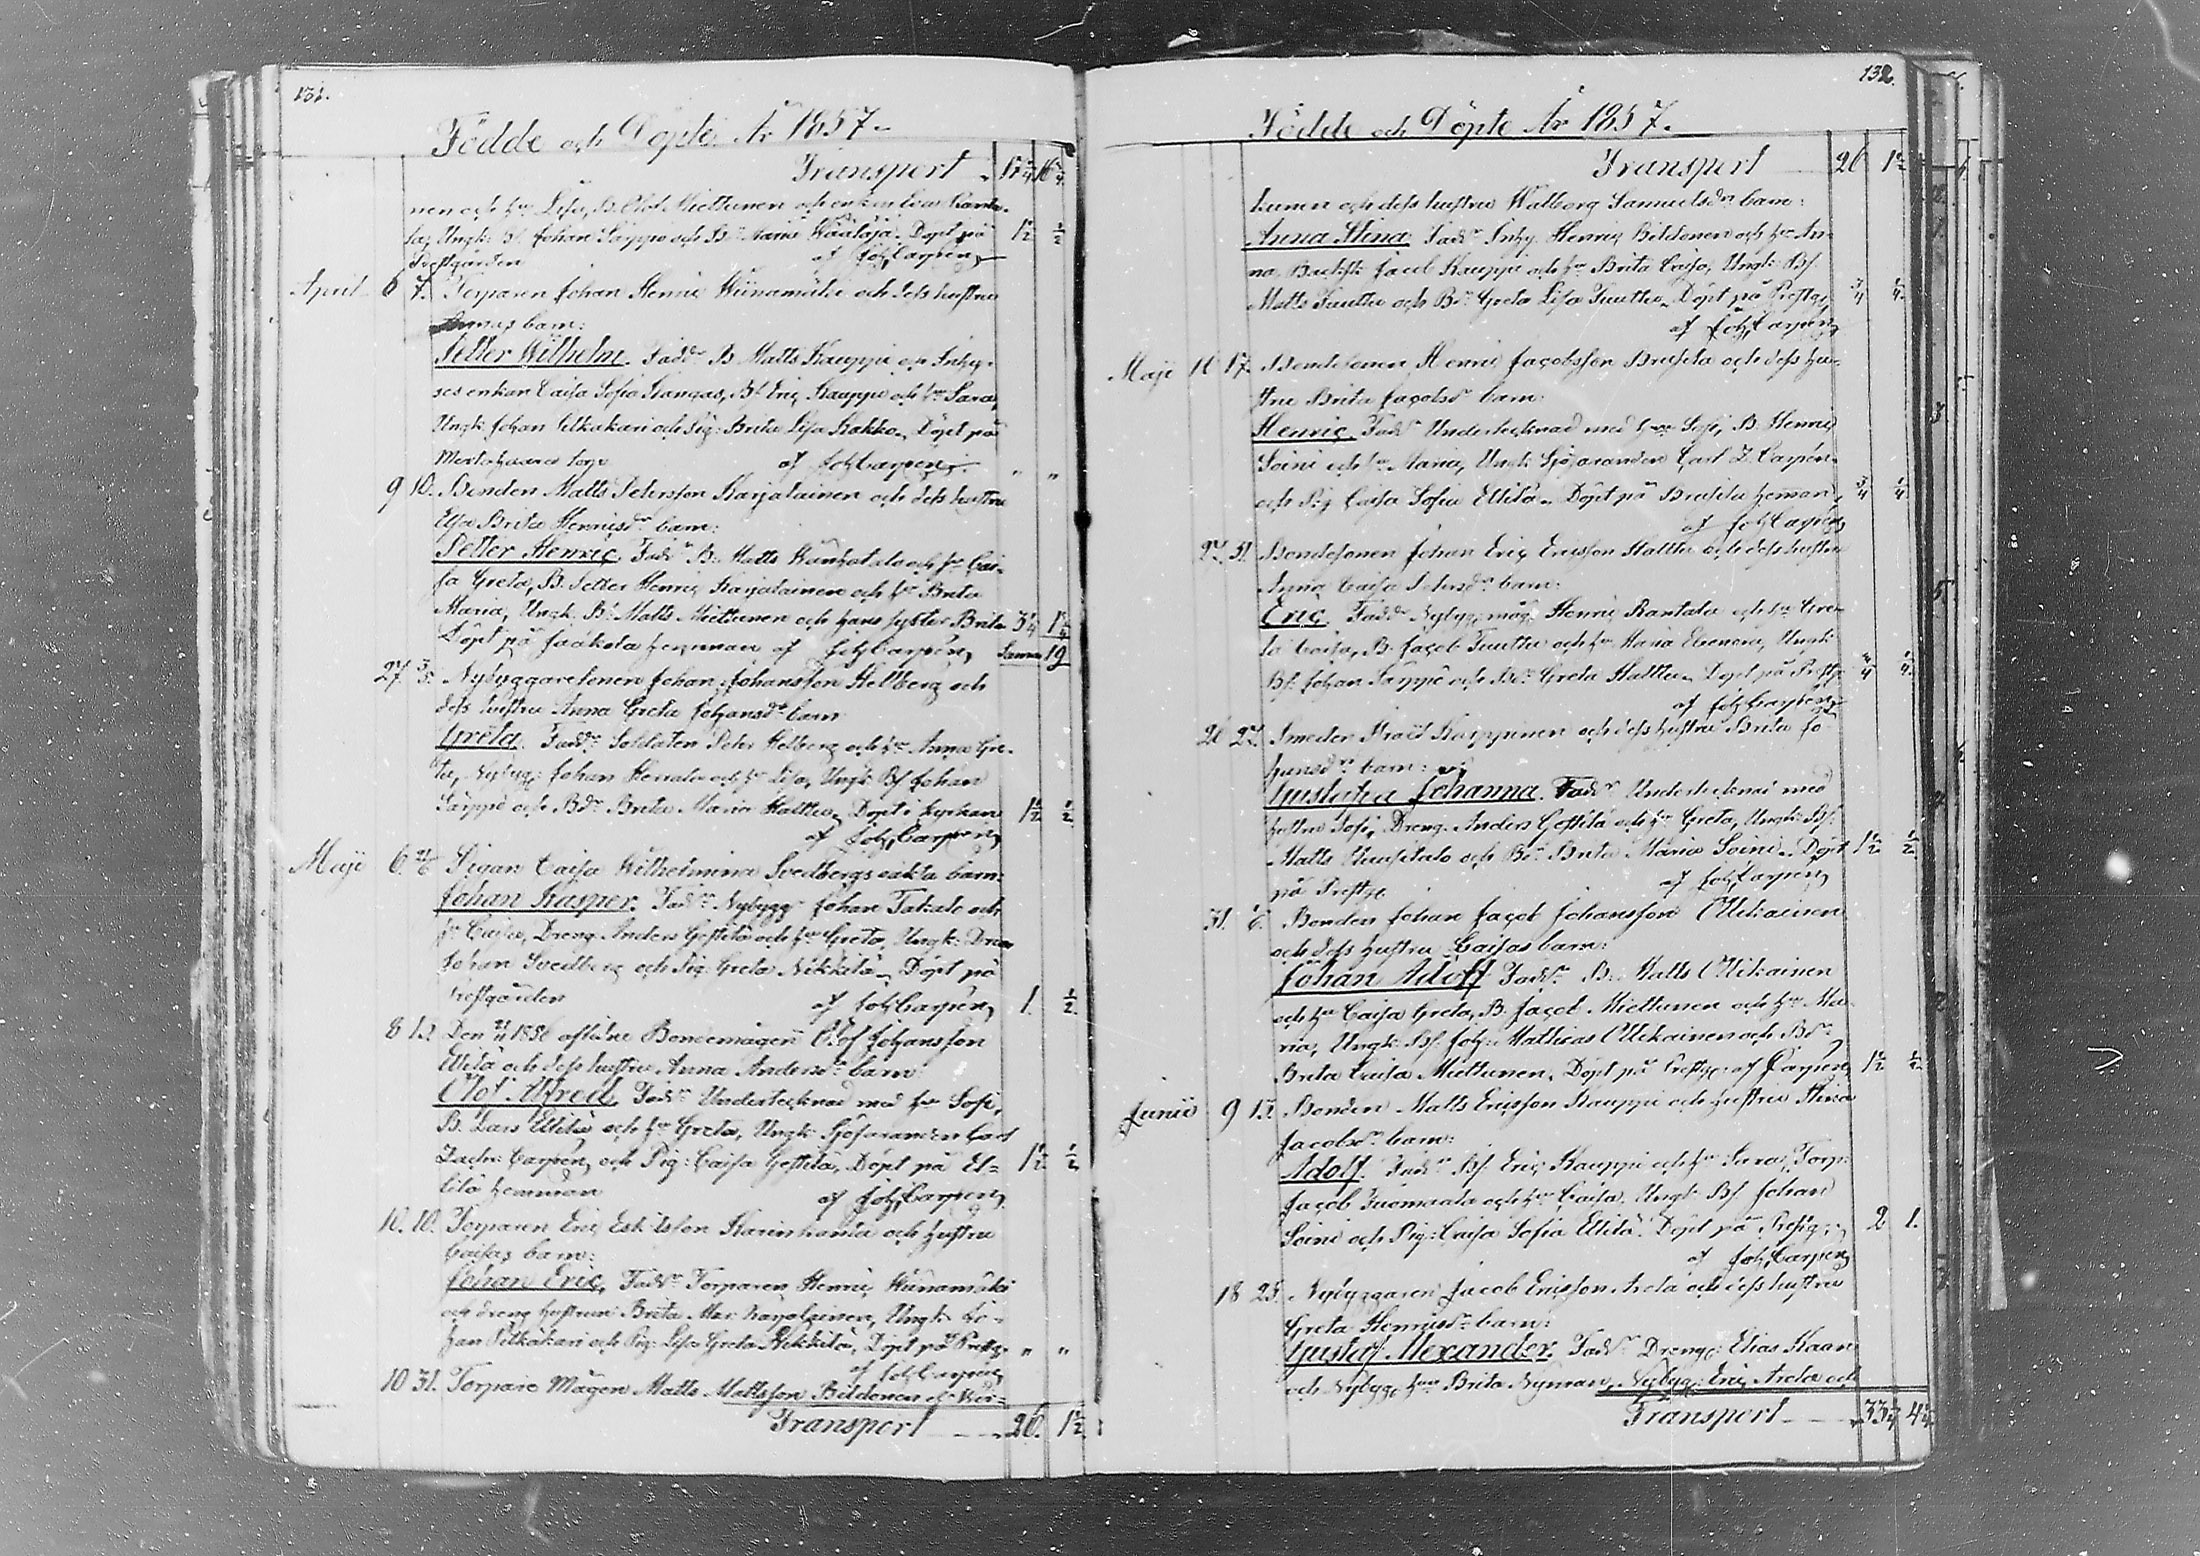 131.
Födde och Döpte År 1857.
Transport
nen och h:u Lisa, B. Olof Miettunen och enkan
Ungk: Bs. Johan Säppö och Maria Döpt på 1½ ½
Prestgården af Joh, Carpén,
April 6 7. Torparen Johan Henric Wiinamäki och dess hustru
Annas barn:
Petter Wilhelm. Fadd:r B. Matts Kauppi och Inhy-
ses enkan Caisa Sofia Kangas, Bs. Eric Kauppi och h:u Sara,
Ungk. Johan Pitkäkari och Pig: Brita Lisa Kokko, Döpt på
torp af Joh Carpén, " "
9 10. Bonden Matts Petersson Karjalainen och dess hustru
Elsa Brita Henricsd:r barn:
Petter Henric. Fadd:r B: Matts och h:u Cai-
sa Greta, B. Petter Henric Karjalainen och h:u Brita
Maria, Ungk. B: Matts Miettunen och hans syster Brita
Döpt på Jaakola hemman af Joh Carpén, Summa 19
27. 3/5. Nybyggaresonen Johan Johansson Helberg och
dess hustru Anna Greta Johansd:r barn
Greta. Fadd:r Soldaten Peter Helberg och h:u Anna Gre-
ta, Nybyg: Johan och h:u Lisa, Ungk Bs Johan
Säppö och Bd:r Brita Maria Halttu, Döpt i kyrkan 1½ ½
af Joh, Carpén,
Maji 6. Pigan Caisa Wilhelmina Svedbergs oäkta barn:
Johan Kasper. Fadd:r Nybygg: Johan Takalo och
h:u Caisa, Dreng Anders Gestilä och h:u Greta, Ungk: Dren
Johan Svedberg och Pig: Greta Nikkilä, Döpt på
Prestgården af Joh, Carpén, 1. ½
8 Den 1856 aflidne Bondemågen Olof Johansson
Ellilä och dess hustru Anna Andersd:r barn
Olof Alfred. Fadd:r Undertecknad med h:u Sofi,
B. Lars Ellilä och h:u Greta, Ungk Sjöfaranden Carl
Zachr: Carpén, och Pig: Caisa Gestilä, Döpt på El= 1½ ½
lilä hemman af Joh, Carpén,
10. 10. Torparen Eric Eskilsson och hustru
Caisas barn:
Johan Eric, Fadd:r Torparen Henric Wiinamäki
och dreng hustrun Brita Mar. Karjalainen, Ungk: Jo-
han Pitkäkari och Pig: Lisa Greta Nikkilä, Döpt på Prestg: " "
af Joh Carpén,
10 31. Torpare Mågen Matts Mattsson
Transport 26. 1½
132.
Födde och Döpte År 1857.
Transport 26 1½
och dess hustru Walborg Samuelsd:r barn:
Anna Stina. Fadd:r Inhy. Henric och h:u An-
na, Jacob Kauppi och h:u Brita Caisa, Ungk: Bs.
Matts Tuuttu och Bd:r Greta Lisa Tuuttu, Döpt på Prestg: ¾ ¼
af Joh, Carpén,
Maji 16 17. Bondesonen Henric Jacobsson och dess hu-
stru Brita Jacobsd:r barn:
Henric. Fadd:r Undertecknad med h:u Sofi, B. Henric
Soini och h:u Maria, Ungk: Sjöfaranden Carl Z. Carpén
och Pig Caisa Sofia Ellilä, Döpt på hemman, ¾ ¼
af Joh Carpén,
27. 31. Bondesonen Johan Eric Ericsson Halttu och dess hustru
Anna Caisa Petersd:r barn:
Eric. Fadd:r Nybyg: måg Henric Rantala och h:u Gre-
ta Caisa, B. Jacob Tuuttu och h:u Maria Eleonora, Ungk:
Bs. Johan Säppö och Bd:r Greta Halttu, Döpt på Prestg: ¾ ¼
af Joh Carpén,
26 27. Smeden Kaippinen och dess hustru Brita Jo-
hansd:r barn:
Gustafva Johanna. Fadd:r Undertecknad med
hustru Sofi, Dreng. Anders Gestilä och h:u Greta, Ungk: Bs.
Matts Uusitalo och Bd:r Brita Maria Soini, Döpt 1½ ½
på Prestg: af Joh, Carpén,
31. 6. Bonden Johan Jacob Johansson Ollikainen
och dess hustru Caisas barn:
Johan Adolf Fadd:r B. Matts Ollikainen
och h:u Caisa Greta, B. Jacob Miettunen och h:u Ma-
ria, Ungk. Bs. Joh: Mathias Ollikainen och Bd:r
Brita Caisa Miettunen, Döpt på Prestg: af Carpén, 1½ ½
Junii 9 Bonden Matts Ericsson Kauppi och hustru Stina
Jacobsd:r barn:
Adolf. Fadd:r Bs. Eric Kauppi och h:u Sara, Torp:
Jacob Tuomaala och h:u Caisa, Ungk Bs Johan
Soini och Pig: Caisa Sofia Ellilä. Döpt på Prestg: 2 1.
af Joh, Carpén,
18 25. Nybyggaren Jacob Ericsson Arola och dess hustru
Greta Henricsd:r barn:
Gustaf Alexander. Fadd:r Dreng: Elias Kaan
och Nybyg: h:u Brita Nyman, Nybyg: Eric Arola och
Transport